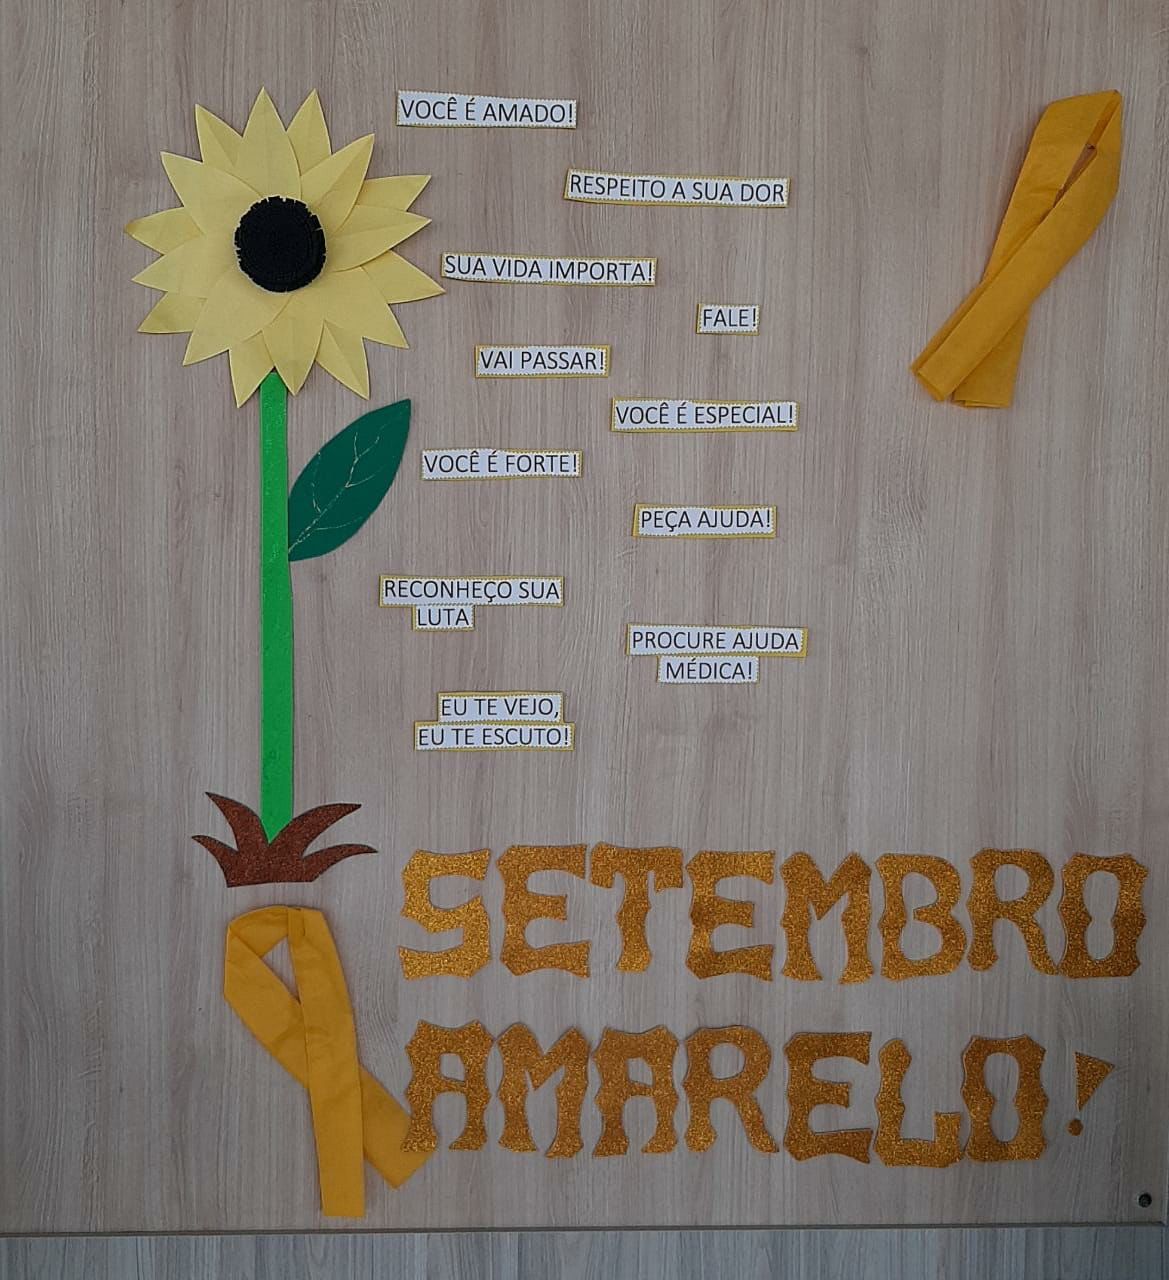 VOCÊ É AMADO!
RESPEITO A SUA DOR
SUA VIDA IMPORTA!
FALE!
VAI PASSAR!
VOCÊ É ESPECIAL!
VOCÊ É FORTE!
PEÇA AJUDA!
RECONHEÇO SUA
LUTA
PROCURE AJUDA
MÉDICA!
EU TE VEJO,
EU TE ESCUTO!
SETEMBRO
AMARELO!